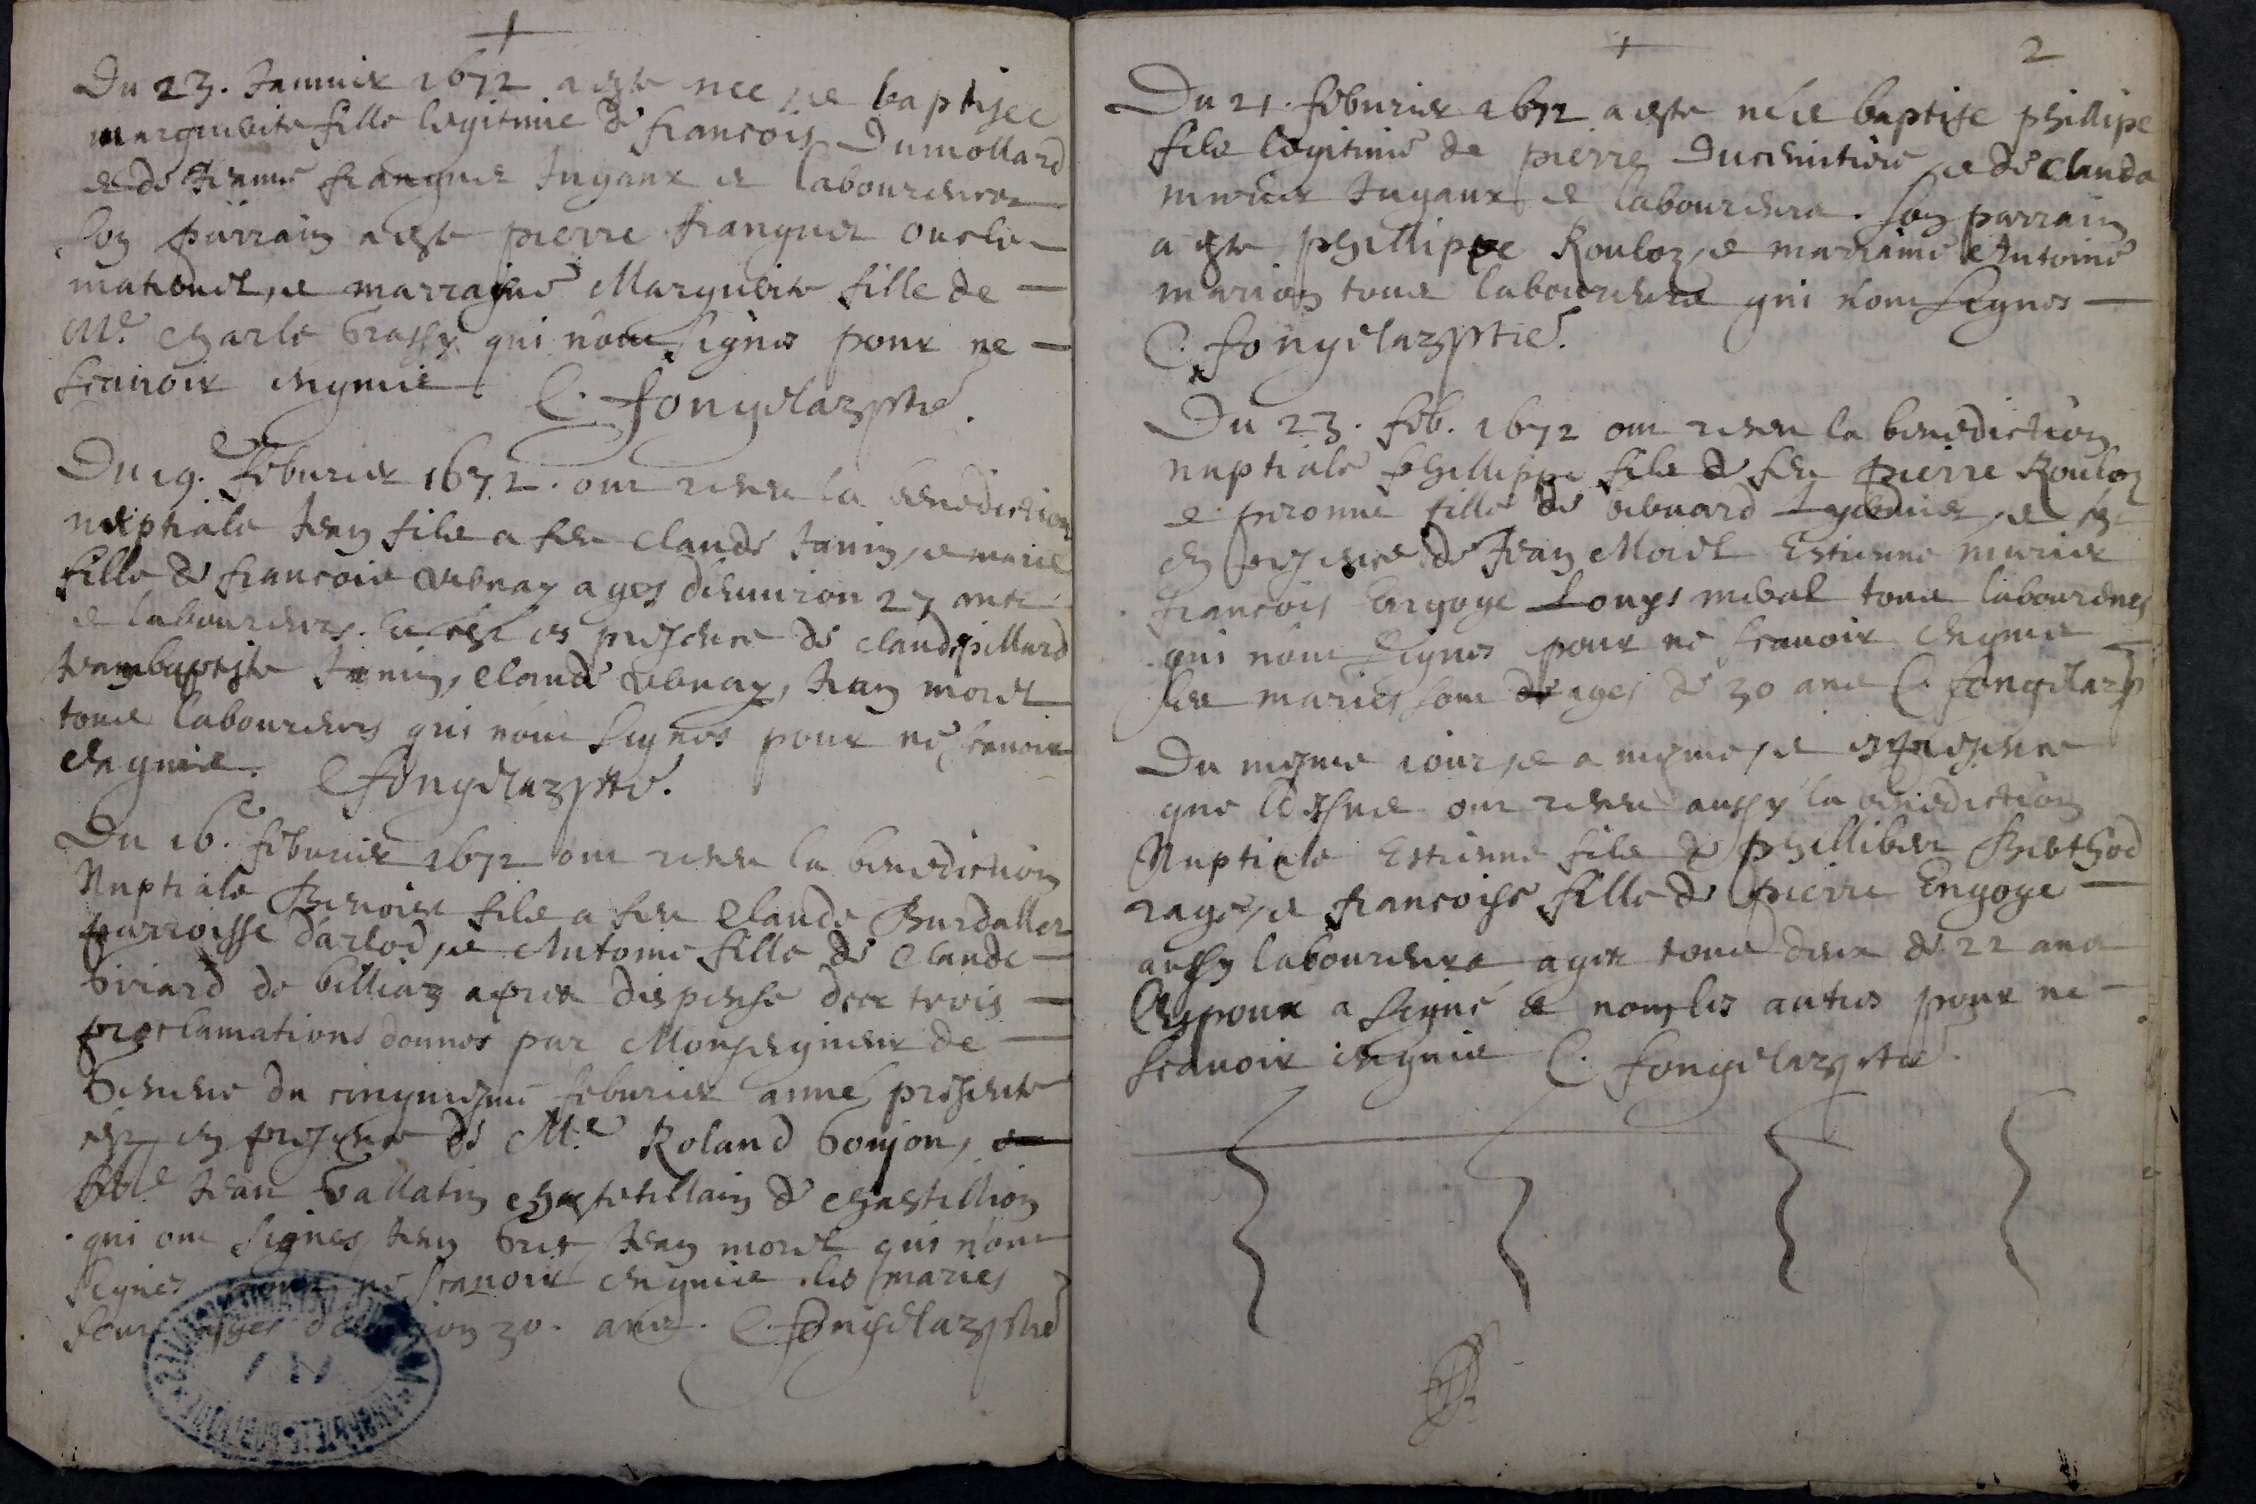 Du 23. Januier 1672 a este nee et baptisee
marguerite fille legitime de francois Dumollard
et de Jeanne franquet Jugaux et laboureurs
son parrain a este pierre franquet oncle
maternel, et marraine Marguerite fille de
Me. charle brassy qui nont signes pour ne
scauoir enquis C. fongelaz ptre.
Du 19e. feburier 1672. ont receu la benediction
nuptiale Jean filz a feu claude Janin, et marie
fille de francois aubnay ages denuiron 27 ants
et laboureurs. en presence de claude pillard
Jeanbaptiste Janin, claude aubnay, Jean morel
tous laboureurs qui nont signes pour ne scauoir
enquis. C fongelaz ptre.
Du 16e. feburier 1672 ont receu la benediction
Nuptiale Benoist filz a feu Claude Burdallet
parroisse darlod, et Antoine fille de Claude
biriard de billiaz apres dispense des trois
proclamations donnes par Monseigneur de
Geneue du cinquiesme feburier anné presente
en presence de Me Roland bonjon, et
Me Jean vallatin chastellain de chastillion
qui ont signes Jean bris Jean morel qui nont
signes pour ne scauoir enquis. les maries
sont ages denuiron 30. ans. C. fongelaz ptre
2
Du 21. feburier 1672 a este né et baptise phillipe
filz legitime de pierre Ducimitiere et de Clauda
murier Jugaux et laboureurs. son parrain
a este phillippe Rouloz, et marraine Antoine
marion tous laboureurs qui nont signes
C. fongelaz ptre.
Du 23. feb. 1672 ont receu la benediction
nuptiale phillippe filz de feu pierre Rouloz
et peronne fille de bernard
en presence de Jean Morel Estienne murier
francois Engoge Louys meval tous laboureurs
qui nont signes pour ne scauoir enquis
les maries sont ages de 30 ans C. fongelaz p
Du mesme iour, et a mesme, et presence
que dessus ont receu aussy la benediction
Nuptiale Estienne filz de philliber Berthod
rage, et francoise fille de pierre Engoge
aussy laboureurs ages tous deux de 22 ans
Lespoux a signé et non les autres pour ne
scauoir enquis C. fongelaz ptre.